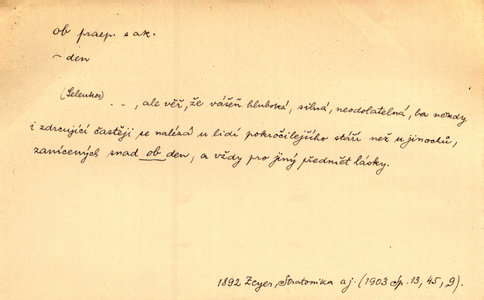 ob praep. s ak.
~ den
(Seleukos) . . , ale věř, že vášeň hluboká, silná, neodolatelná, ba někdy
i zdrcující častěji se nalézá u lidí pokročilejšího stáří než u jinochů,
zanícených snad ob den, a vždy pro jiný předmět lásky.
1892 Zeyer, Stratonika a j. (1903 čp. 13, 45, 9).